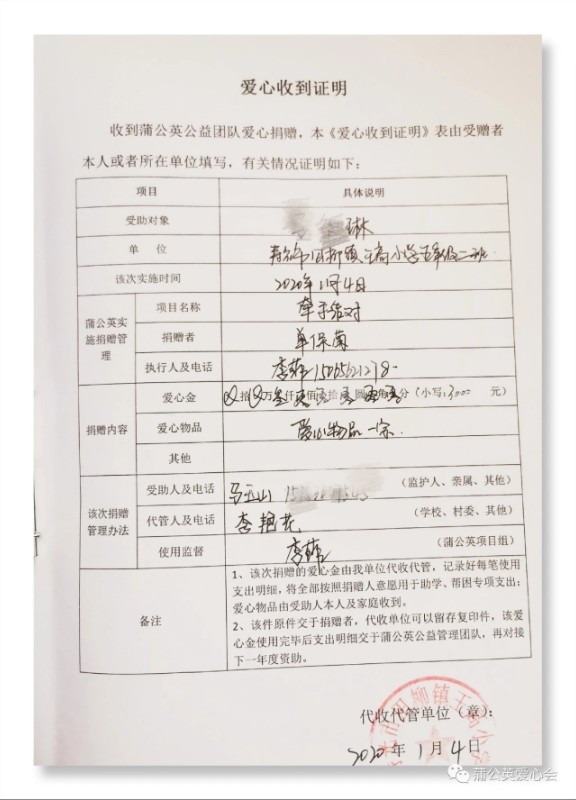 爱心收到证明
收到蒲公英公益团队爱心捐赠,本《爱心收到证明》表由受赠者
本人或者所在单位填写,有关情况证明如下:
项目 具体说明
受助对象 琳
单 位 田柳镇王高小学五年级二班
该次实施时间 2020年1月4日
蒲公英实施捐赠管理
项目名称 牵手结对
捐赠者 单保菊
执行人及电话
捐赠内容
爱心金 拾 万 仟 佰 拾 圆 角 分(小写:3000 元)
爱心物品 爱心物品一宗
其他
该次捐赠管理办法
受助人及电话 马玉山 (监护人、亲属、其他)
代管人及电话 李艳花 (学校、村委、其他)
使用监督 (蒲公英项目组)
备注
1、该次捐赠的爱心金由我单位代收代管,记录好每笔使用
支出明细,将全部按照捐赠人意愿用于助学、帮困专项支出;
爱心物品由受助人本人及家庭收到。
2、该件原件交于捐赠者,代收单位可以留存复印件,该爱
心金使用完毕后支出明细交于蒲公英公益管理团队,再对接
下一年度资助。
代收代管单位(章):
2020年1月4日
蒲公英爱心会